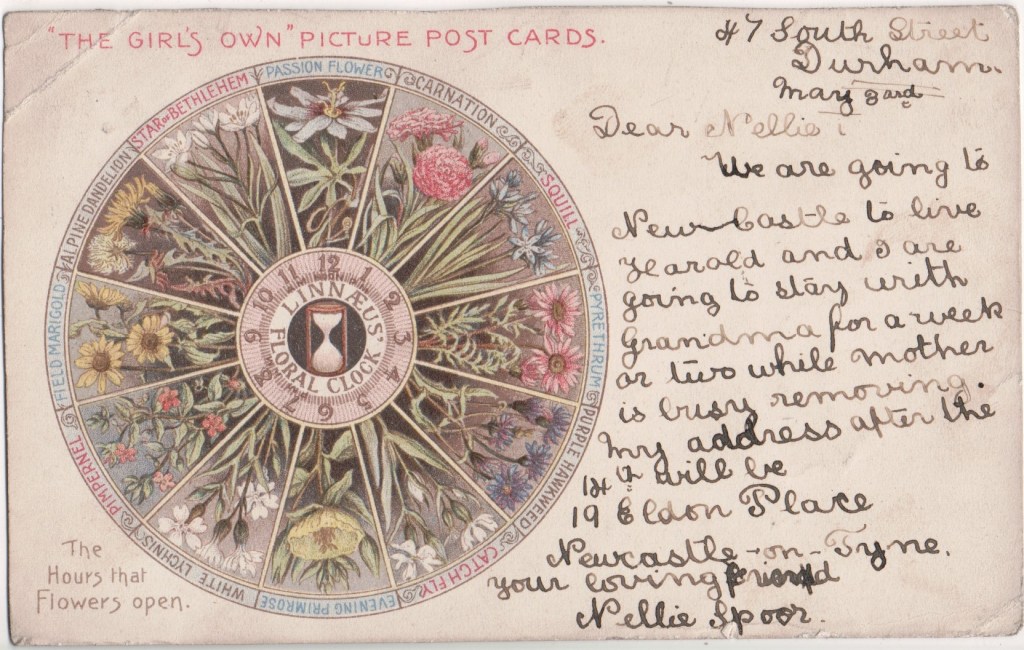 "THE GIRL'S OWN" PICTURE POST CARDS.
PASSION FLOWER
CARNATION
SQUILL
PYRETHRUM
PURPLE HAWKWEED
CATCH FLY
EVENING PRIMROSE
WHITE LYCHNIS
PIMPERNEL
FIELD MARIGOLD
ALPINE DANDELION
STAR OF BETHLEHEM
12 1 2 3 4 5 6 7 8 9 10 11
LINNÆUS'
FLORAL CLOCK
The
Hours that
Flowers open.
47 South Street
Durham.
May 3ard
Dear Nellie,
We are going to
New Castle to live
and I are
going to stay with
Grandma for a week
or two while mother
is busy removing.
My address after the
14th will be
19 Eldon Place
Newcastle-on-Tyne.
your loving friend
Nellie Spoor.